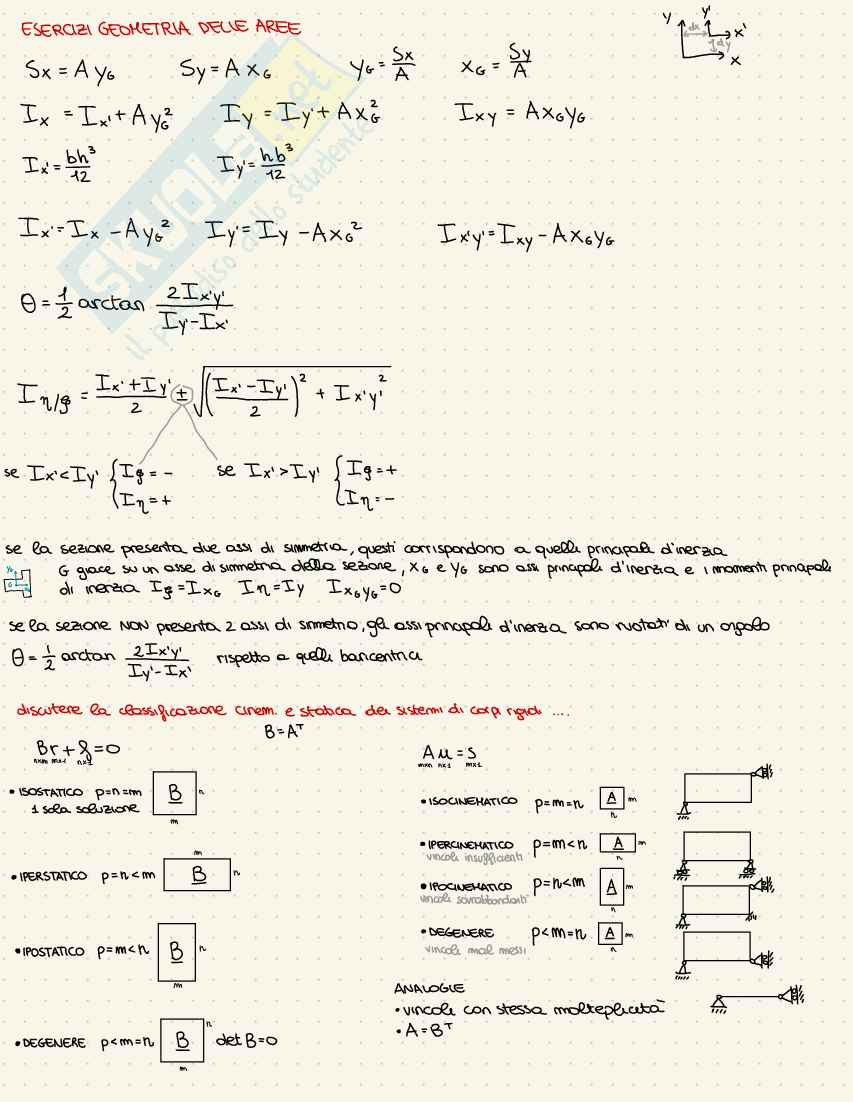 ESERCIZI GEOMETRIA DELLE AREE
y y' dx x' dy x
Sx = A yG Sy = A xG yG = Sx/A xG = Sy/A
Ix = Ix' + A yG² Iy = Iy' + A xG² Ixy = A xG yG
Ix' = bh³/12 Iy' = hb³/12
Ix' = Ix - A yG² Iy' = Iy - A xG² Ix'y' = Ixy - A xG yG
θ = 1/2 arctan 2Ix'y' / Iy' - Ix'
Iη/ξ = Ix' + Iy' / 2 ± √((Ix' - Iy' / 2)² + Ix'y'²)
se Ix' < Iy' { Iξ = - se Ix' > Iy' { Iξ = +
Iη = + Iη = -
se la sezione presenta due assi di simmetria, questi corrispondono a quelli principali d'inerzia
G giace su un asse di simmetria della sezione, xG e yG sono assi principali d'inerzia e i momenti principali
di inerzia Iξ = IxG Iη = Iy IxGyG = 0
se la sezione NON presenta 2 assi di simmetria, gli assi principali d'inerzia sono ruotati di un angolo
θ = 1/2 arctan 2Ix'y' / Iy' - Ix' rispetto a quelli baricentrici
discutere la classificazione cinem. e statica dei sistemi di corpi rigidi ....
B = Aᵀ
Br + f = 0
nxm mx1 nx1
• ISOSTATICO p=n=m B n
1 sola soluzione m
m
• IPERSTATICO p=n<m B n
• IPOSTATICO p=m<n B n
m
• DEGENERE p<m=n B n det B=0
m
A u = s
mxn nx1 mx1
• ISOCINEMATICO p=m=n A m
n
• IPERCINEMATICO p=m<n A m
vincoli insufficienti n
• IPOCINEMATICO p=n<m A m
vincoli sovrabbondanti n
• DEGENERE p<m=n A m
vincoli mal messi n
ANALOGIE
• vincoli con stessa molteplicità
• A = Bᵀ
SKUOLA.net
il paradiso dello studente